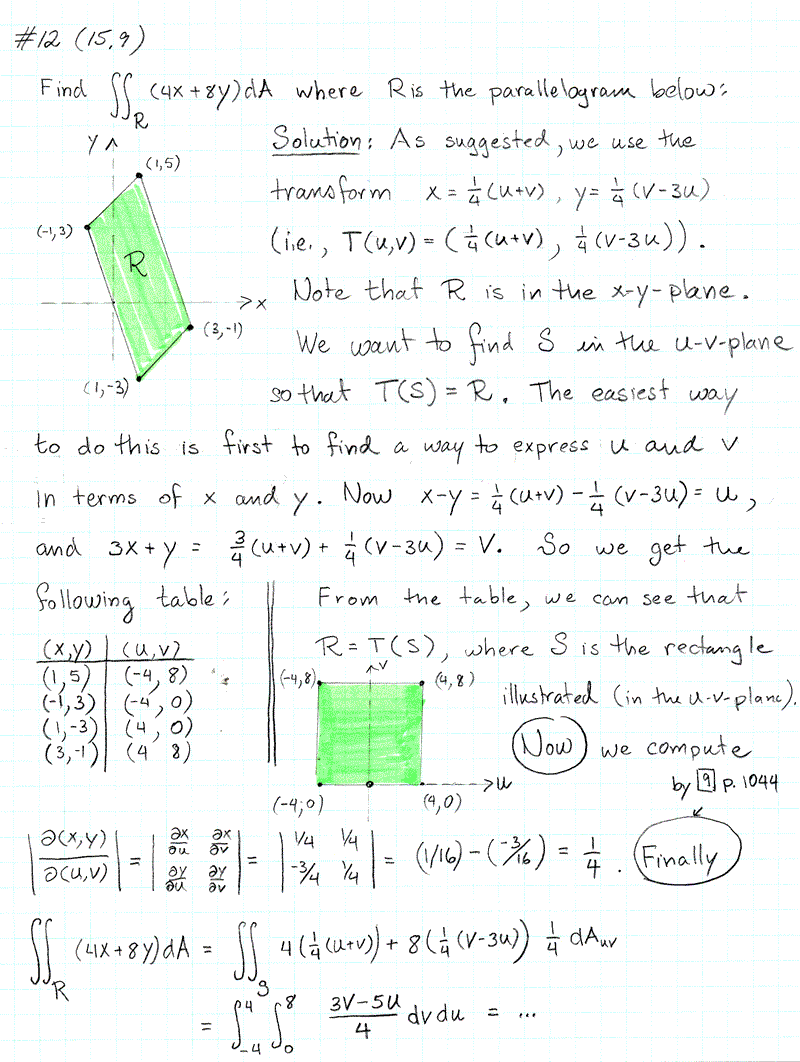 #12 (15.9)
Find ∬_R (4x+8y)dA where R is the parallelogram below:
y
(1,5)
(-1,3)
R
x
(3,-1)
(1,-3)
Solution: As suggested, we use the
transform x = 1/4(u+v), y = 1/4(v-3u)
(i.e., T(u,v) = (1/4(u+v), 1/4(v-3u)).
Note that R is in the x-y-plane.
We want to find S in the u-v-plane
so that T(S) = R. The easiest way
to do this is first to find a way to express u and v
in terms of x and y. Now x-y = 1/4(u+v) - 1/4(v-3u) = u,
and 3x+y = 3/4(u+v) + 1/4(v-3u) = v. So we get the
following table:
(x,y) | (u,v)
(1,5) | (-4, 8)
(-1,3) | (-4, 0)
(1,-3) | (4, 0)
(3,-1) | (4 8)
From the table, we can see that
R = T(S), where S is the rectangle
illustrated (in the u-v-plane).
v
(-4,8)
(4,8)
u
(-4,0)
(4,0)
Now we compute
by [9] p. 1044
|∂(x,y)/∂(u,v)| = |∂x/∂u ∂x/∂v; ∂y/∂u ∂y/∂v| = |1/4 1/4; -3/4 1/4| = (1/16) - (-3/16) = 1/4. Finally
∬_R (4x+8y)dA = ∬_S 4(1/4(u+v)) + 8(1/4(v-3u)) 1/4 dA_uv
= ∫_-4^4 ∫_0^8 (3v-5u)/4 dv du = ...